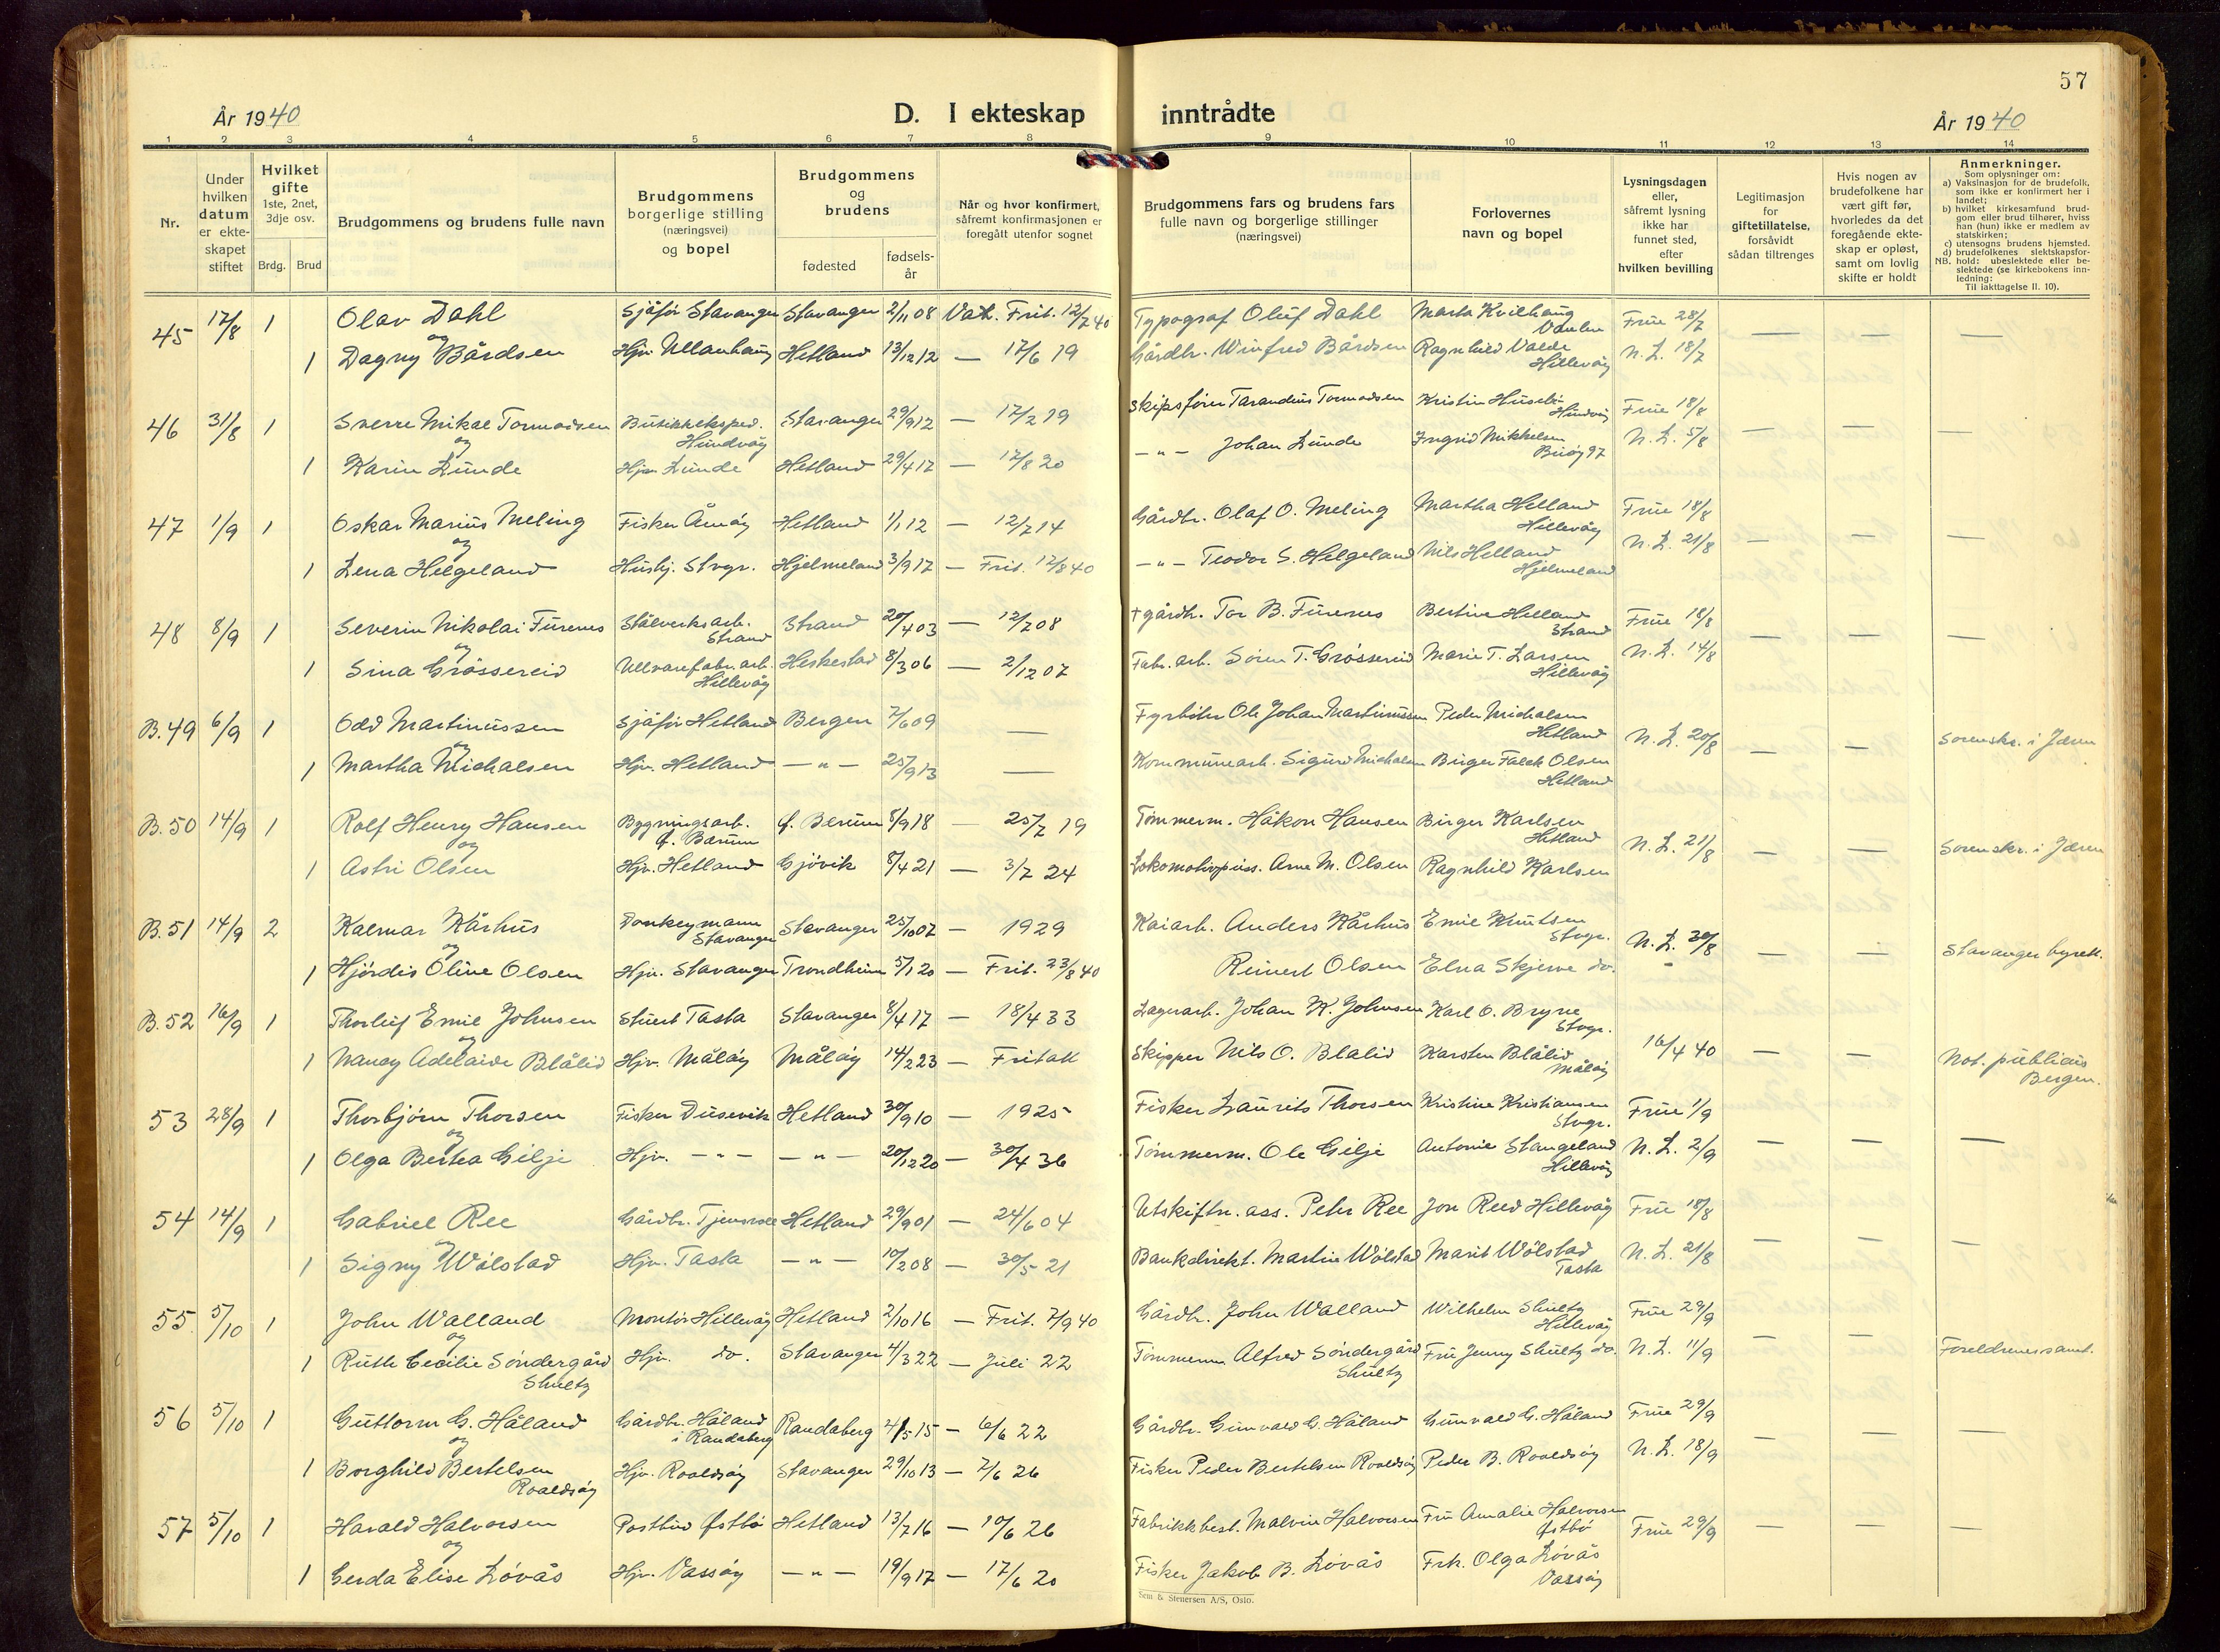 57
År 1940
D. I ekteskap inntrådte
År 1940
1 2 3 4 5 6 7 8 9 10 11 12 13 14
Nr.
Under hvilken datum er ekteskapet stiftet
Hvilket gifte 1ste, 2net, 3dje osv.
Brdg. Brud
Brudgommens og brudens fulle navn
Brudgommens borgerlige stilling (næringsvei) og bopel
Brudgommens og brudens
fødested
fødselsår
Når og hvor konfirmert, såfremt konfirmasjonen er foregått utenfor sognet
Brudgommens fars og brudens fars fulle navn og borgerlige stillinger (næringsvei)
Forlovernes navn og bopel
Lysningsdagen eller, såfremt lysning ikke har funnet sted, efter hvilken bevilling
Legitimasjon for giftetillatelse, forsåvidt sådan tiltrenges
Hvis nogen av brudefolkene har vært gift før, hvorledes da det foregående ekteskap er opløst, samt om lovlig skifte er holdt
Anmerkninger.
Som oplysninger om:
a) Vaksinasjon for de brudefolk, som ikke er konfirmert her i landet;
b) hvilket kirkesamfund brudgom eller brud tilhører, hviss han (hun) ikke er medlem av statskirken;
c) utensogns brudens hjemsted.
d) brudefolkenes slektskapsforhold: ubeslektede eller beslektede (se kirkebokens innledning:
NB.
Til iakttagelse II. 10).
45 17/8 1 Olav Dahl Sjåfør Stavanger Stavanger 2/11 08 Vat. Frit. 12/7 40 Typograf Oluf Dahl Marta Kvilhaug Vaulen Frue 28/7 — — —
og
1 Dagny Bårdsen Hjv. Ullanhaug Hetland 13/12 12 — 17/6 19 Gårdbr. Winfred Bårdsen Ragnhild Valde Hillevåg N. L. 18/7
46 31/8 1 Sverre Mikal Tormodsen Butikkeksped. Hundvåg Stavanger 29/9 12 — 17/2 19 Skipsfører Tarandus Tormodsen Kristin Husebø Hundvåg Frue 18/8 — — —
og
1 Karin Lunde Hjv. Lunde Hetland 29/4 17 — 17/8 20 — " — Johan Lunde Ingrid Mikkelsen Buøy 97 N. L. 5/8
47 1/9 1 Oskar Marius Meling Fisker Åmøy Hetland 1/1 12 — 12/7 14 Gårdbr. Olaf O. Meling Martha Helland Hillevåg Frue 18/8 — — —
og
1 Lena Helgeland Hushj. Stvgr. Hjelmeland 3/9 17 — Frit. 12/8 40 — " — Teodor S. Helgeland Nils Helland Hjelmeland N. L. 21/8
48 8/9 1 Severin Nikolai Furenes Stålverksarb. Strand Strand 20/4 03 — 12/7 08 † gårdbr. Tor B. Furenes Bertine Helland Strand Frue 18/8 — — —
og
1 Sina Grøssereid Ullvarefabr. arb. Hillevåg Heskestad 8/3 06 — 2/12 07 Fabr. arb. Søren T. Grøssereid Marie T. Larsen Hillevåg N. L. 14/8
B. 49 6/9 1 Odd Martinussen Sjåfør Hetland Bergen 7/6 09 — Fyrbøter Ole Johan Martinussen Peder Michalsen Hetland N. L. 20/8 — — Sorenskr. i Jæren
og
1 Martha Michalsen Hjv. Hetland — " — 25/9 13 — Kommunearb. Sigurd Michalsen Birger Falck Olsen Hetland
B. 50 14/9 1 Rolf Henry Hansen Bygningsarb. Ø. Bærum Ø. Berum 8/9 18 — 25/7 19 Tømmerm. Håkon Hansen Birger Karlsen Hetland N. L. 21/8 — — Sorenskr. i Jæren
og
1 Astri Olsen Hjv. Hetland Gjøvik 8/4 21 — 3/7 24 Lokomotivpuss. Arne M. Olsen Ragnhild Karlsen
B. 51 14/9 2 Kalmar Kårhus Donkeymann Stavanger Stavanger 25/10 07 — 1929 Kaiarb. Anders Kårhus Emil Knutsen Stvgr. N. L. 30/8 — — Stavanger byrett.
og
1 Hjørdis Oline Olsen Hjv. Stavanger Trondheim 5/1 20 — Frit. 23/8 40 Reinert Olsen Elna Skjerve do.
B. 52 16/9 1 Thorleif Emil Johnsen Stuert Tasta Stavanger 8/4 17 — 18/4 33 Lagerarb. Johan K. Johnsen Karl O. Bryne Stvgr. 16/4 40 — — Not. publicus Bergen.
og
1 Nancy Adelaide Blålid Hjv. Måløy Måløy 14/2 23 — Fritatt Skipper Nils O. Blålid Karsten Blålid Måløy
53 28/9 1 Thorbjørn Thorsen Fisker Dusevik Hetland 30/9 10 — 1925 Fisker Laurits Thorsen Kristine Kristiansen Stvgr. Frue 1/9 — — —
og
1 Olga Berta Gilje Hjv. — " — — " — 20/12 20 — 30/4 36 Tømmerm. Ole Gilje Antonie Stangeland Hillevåg N. L. 2/9
54 14/9 1 Gabriel Ree Gårdbr. Tjensvoll Hetland 29/9 01 — 24/6 04 Utskiftn. ass. Peter Ree Jon Reed Hillevåg Frue 18/8 — — —
og
1 Signy Wølstad Hjv. Tasta — " — 10/2 08 — 30/5 21 Bankdirekt. Martin Wølstad Marit Wølstad Tasta N. L. 21/8
55 5/10 1 John Walland Montør Hillevåg Hetland 2/10 16 — Frit. 7/9 40 Gårdbr. John Walland Wilhelm Shultz Hillevåg Frue 29/9 — — Foreldrenes samt.
og
1 Ruth Cecilie Søndergård Shultz Hjv. do. Stavanger 4/3 22 — Juli 22 Tømmerm Alfred Søndergård Shultz Fru Jenny Shultz do. N. L. 11/9
56 5/10 1 Guttorm G. Håland Gårdbr. Håland i Randaberg Randaberg 4/5 15 — 6/6 22 Gårdbr. Gunvald G. Håland Gunvald G. Håland Frue 29/9 — — —
og
1 Borghild Bertelsen Roaldsøy Hjv. Roaldsøy Stavanger 29/10 13 — 7/6 26 Fisker Peder Bertelsen Roaldsøy Peder B. Roaldsøy N. L. 18/9
57 5/10 1 Harald Halvorsen Postbud Østbø Hetland 13/7 16 — 10/6 26 Fabrikkbest. Malvin Halvorsen Fru Amalie Halvorsen Østbø Frue 29/9 — — —
og
1 Gerda Elise Løvås Hjv. Vassøy — " — 19/9 17 — 17/6 20 Fisker Jakob B. Løvås Frk. Olga Løvås Vassøy
Sem & Stenersen A/S, Oslo.